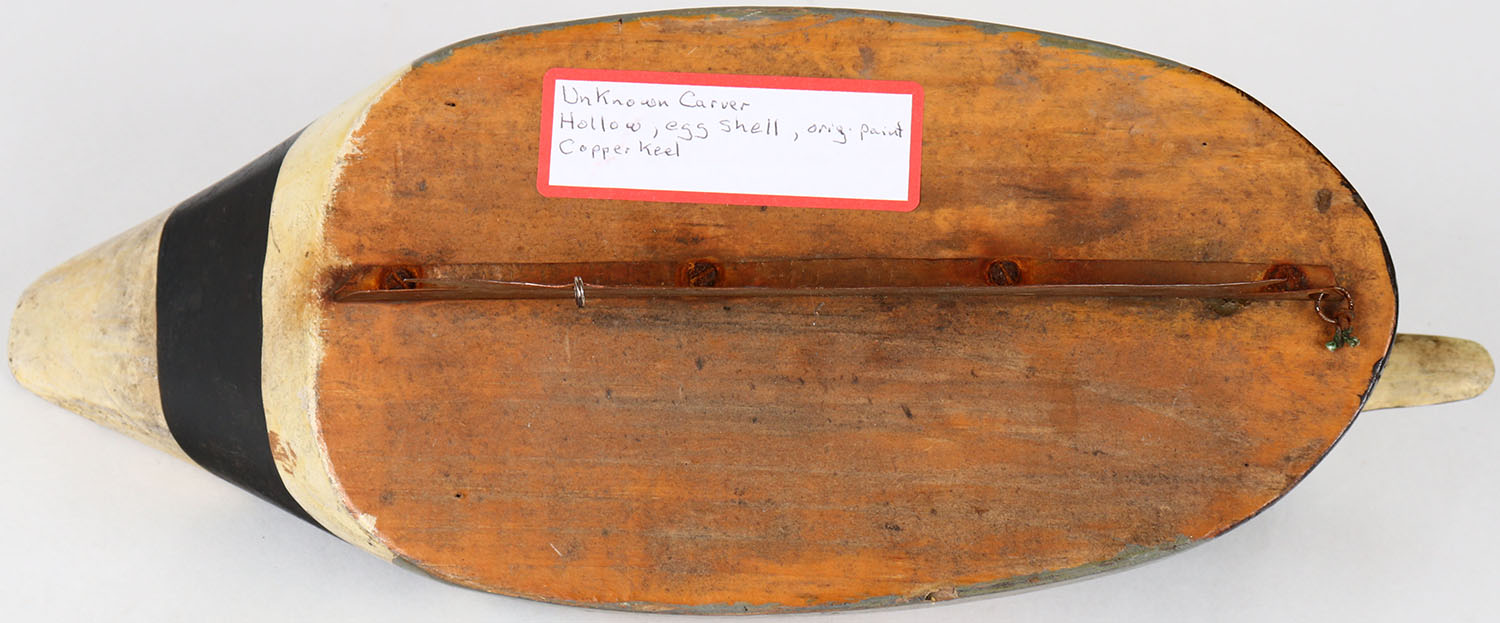 Unknown Carver
Hollow, egg shell, orig. paint
Copper Keel